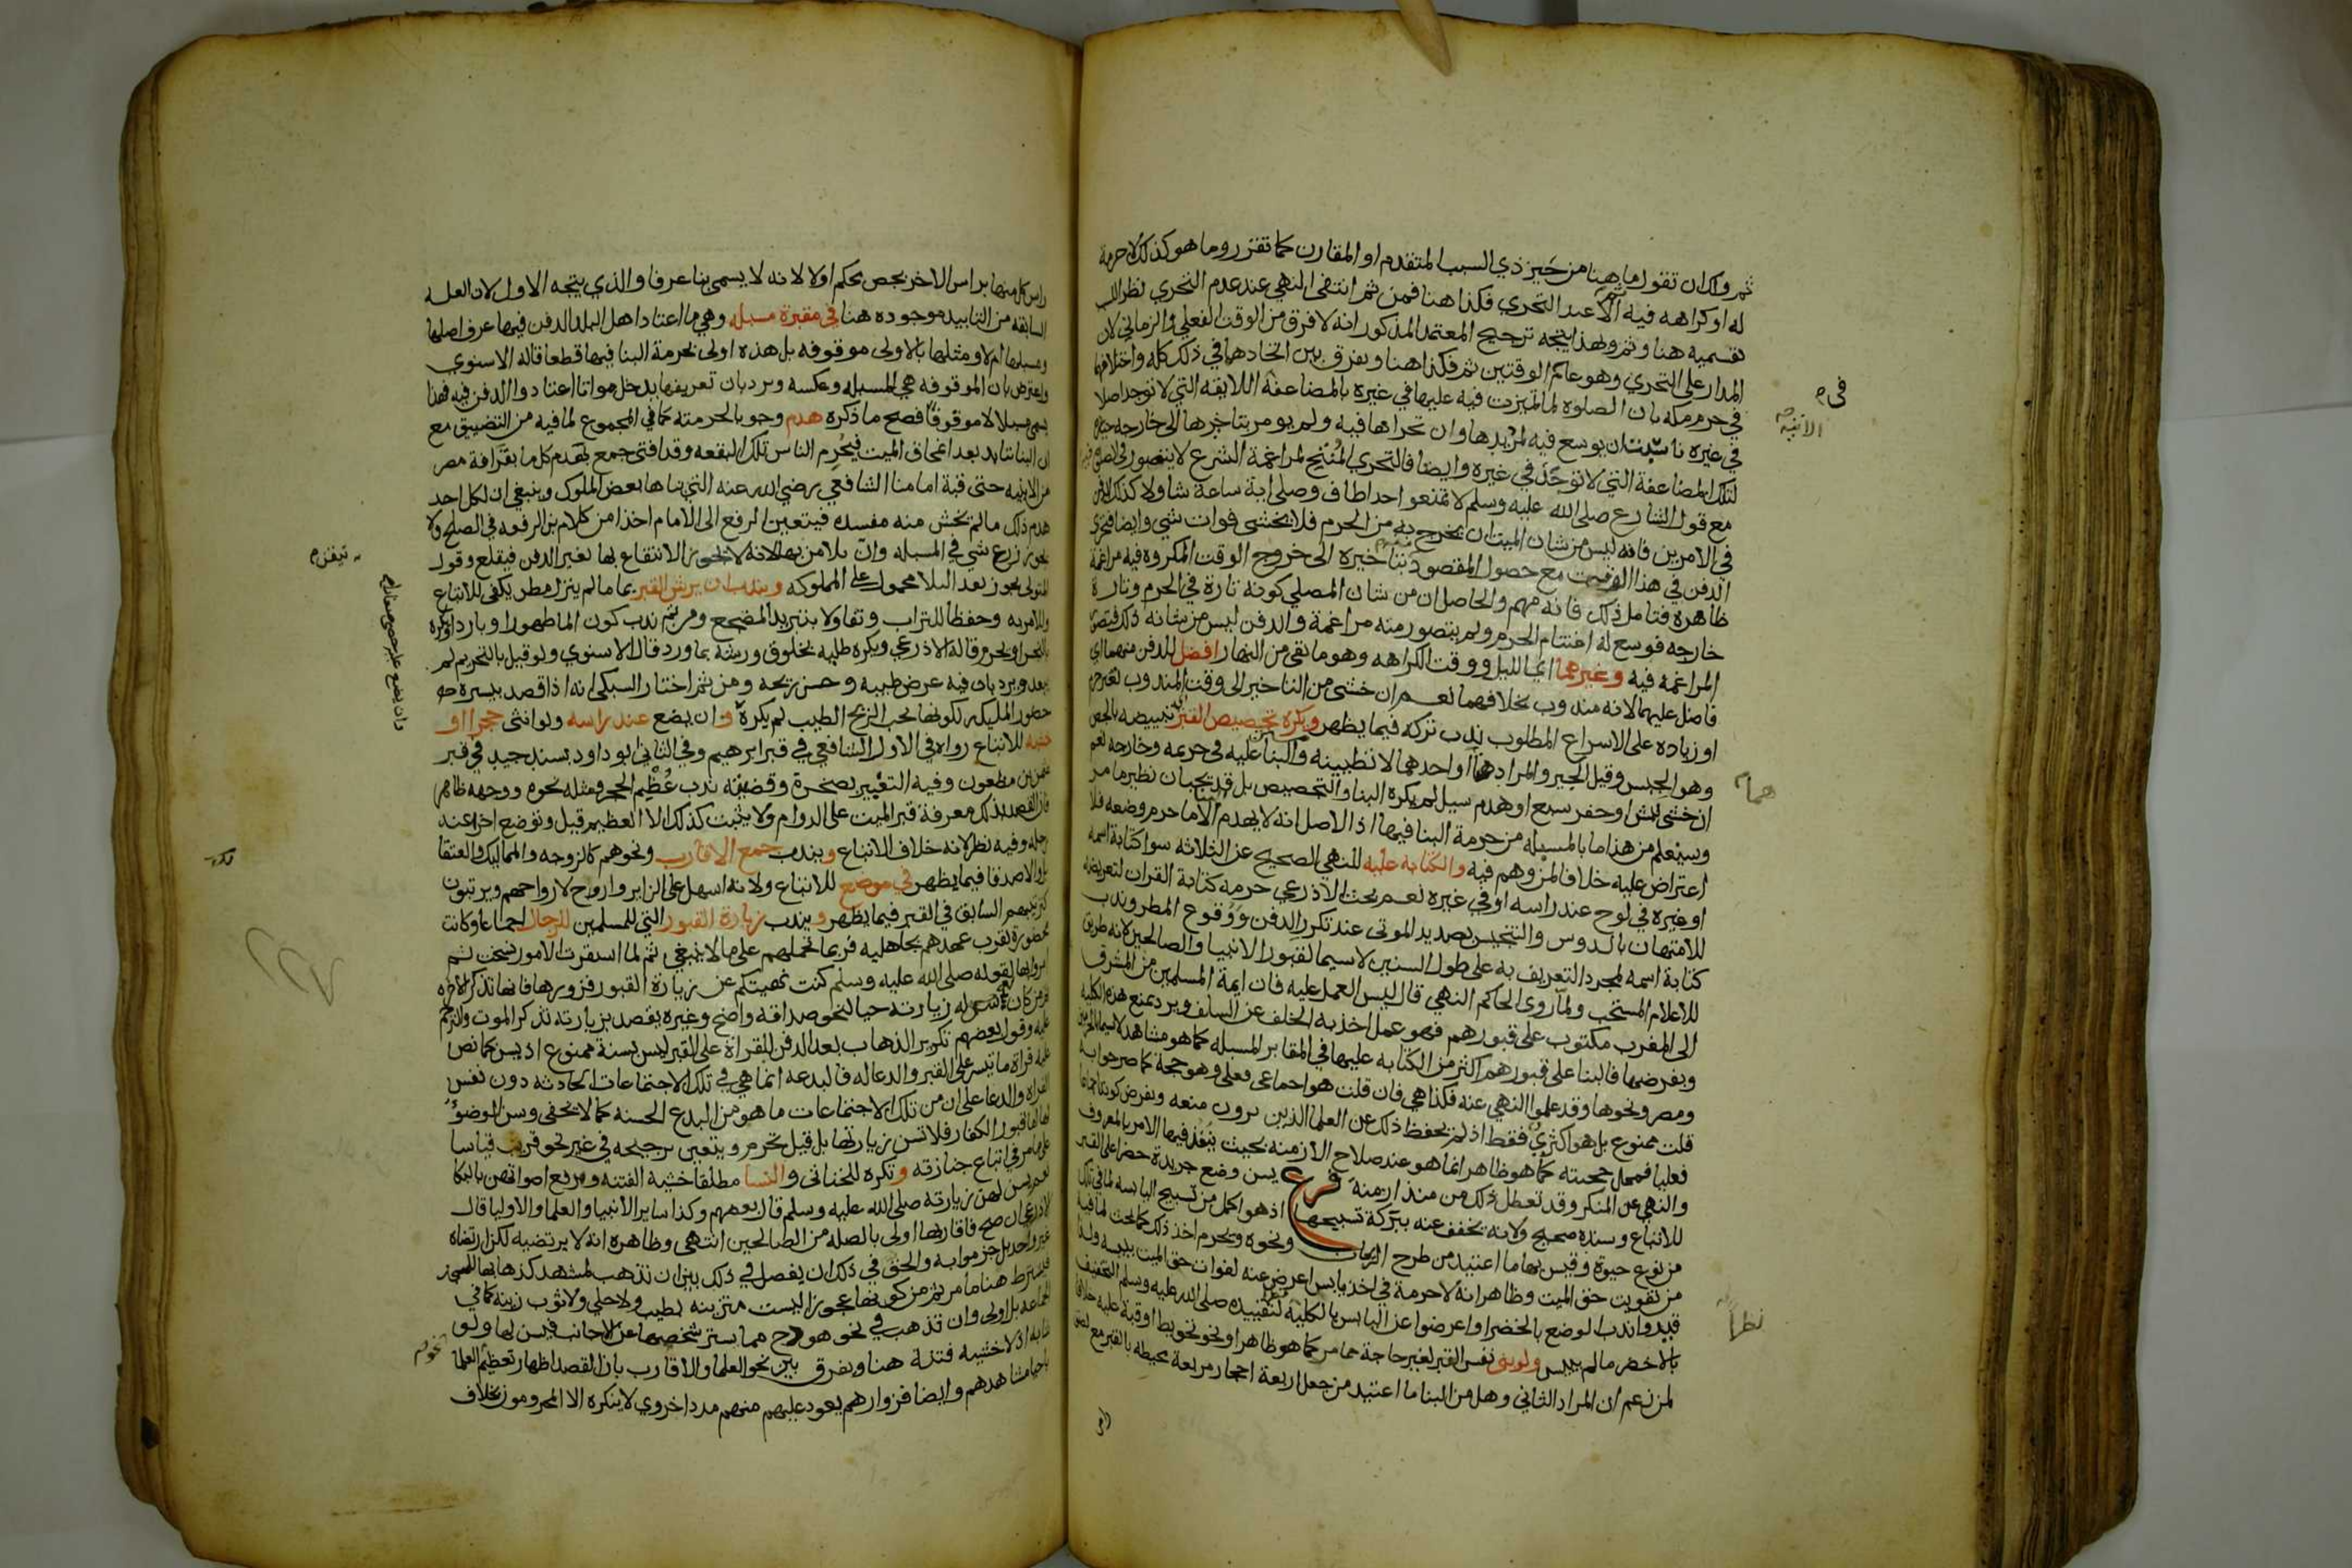 ثم ولك ان تقول ما هنا من حيز ذي السبب المتقدم او المقارن كما تقرر وما هو كذلك لا حرمة
له او كراهه فيه الا عند التحري فكذا هنا فمن ثم انتفى النهي عند عدم التحري نظرا الى
تقسميه هنا وثم ولهذا يتجه ترجيح المعتمد المذكور انه لا فرق من الوقت الفعلي والزماني لان
المدار على التحري وهو عام الوقتين ثم فكذا هنا ويفرق بين اتحادهما في ذلك كله واختلافهما
في حرم مكه بان الصلوه لما تميزت فيه عليها في غيره بالمضاعفة اللايقه التي لا توجد اصلا
في غيره ناسب ان يوسع فيه لمريدها وان تحراها فيه ولم يومر بتاخيرها الى خارجه حيازة
لتلك المضاعفة التي لا توجد في غيره وايضا فالتحري المنتج لمراغمة الشرع لا يتصور
مع قول الشارع صلى الله عليه وسلم لا تمنعوا احدا طاف وصلى اية ساعة شا ولا كذلك الدفن
في الامرين فانه ليس من شان الميت ان يخرج به من الحرم فلا يخشى فوات شي وايضا فتحري
الدفن في هذا الوقت مع حصول المقصود بتاخيره الى خروج الوقت المكروه فيه مراغمة
ظاهرة فتامل ذلك فانه مهم والحاصل ان من شان المصلي كونه تارة في الحرم وتارة
خارجه فوسع له اغتنام الحرم ولم يتصور منه مراغمة والدفن ليس من شانه ذلك فتصور
المراغمة فيه وغيرهما اي الليل ووقت الكراهه وهو ما بقي من النهار افضل للدفن منهما اي
فاضل عليهما لانه مندوب بخلافهما نعم ان خشي من التاخير الى وقت المندوب تغير
او زياده على الاسراع المطلوب ندب تركه فيما يظهر ويكره تجصيص القبر اي تبييضه بالجص
وهو الجبس وقيل الجير والمراد هما او احدهما لا تطيينه والبنا عليه في حرمه وخارجه نعم
ان خشي نبش او حفر سبع او هدم سيل لم يكره البنا والتجصيص بل قد يجبان نظير ما مر
وسيعلم من هذا ما بالمسبله من حرمة البنا فيها اذ الاصل انه لا يهدم الا ما حرم وضعه فلا
اعتراض عليه خلافا لمن وهم فيه والكتابه عليه للنهي الصحيح عن الثلاثه سوا كتابة اسمه
او غيره في لوح عند راسه او في غيره نعم بحث الاذرعي حرمة كتابة القران لتعريضه
للامتهان بالدوس والتنجيس بصديد الموتى عند تكرر الدفن ووقوع المطر وندب
كتابة اسمه لمجرد التعريف به على طول السنين لا سيما لقبور الانبيا والصالحين لانه طريق
للاعلام المستحب ولما روى الحاكم النهي قال ليس العمل عليه فان ايمة المسلمين من المشرق
الى المغرب مكتوب على قبورهم فهو عمل اخذ به الخلف عن السلف ويرد بمنع هذه الكليه
وبفرضها فالبنا على قبورهم اكثر من الكتابه عليها في المقابر المسبله كما هو مشاهد لا سيما بالحرمين
ومصر ونحوها وقد علموا النهي عنه فكذا هي فان قلت هو اجماعي فعلي وهو حجة كما صرحوا به
قلت ممنوع بل هو اكثري فقط اذ لم يحفظ ذلك عن العلما الذين يرون منعه وبفرض كونه اجماعا
فعليا فمحل حجيته كما هو ظاهر انما هو عند صلاح الازمنه بحيث ينفذ فيها الامر بالمعروف
والنهي عن المنكر وقد تعطل ذلك من منذ ازمنة فرع يسن وضع جريدة خضرا على القبر
للاتباع وسنده صحيح ولانه يخفف عنه ببركة تسبيحها اذ هو اكمل من تسبيح اليابسه لما في تلك
من نوع حيوة وقيس بها ما اعتيد من طرح الريحان ونحوه ويحرم اخذ ذلك كما بحث لما فيه
من تفويت حق الميت وظاهر انه لا حرمة في اخذ يابس اعرض عنه لفوات حق الميت بيبسه ولذا
قيدوا ندب الوضع بالخضرا واعرضوا عن اليابس بالكليه لتقييده صلى الله عليه وسلم التخفيف
بالاخضر ما لم ييبس ولو بني نفس القبر لغير حاجة مما مر كما هو ظاهر او نحو تحويط او قبة عليه خلافا
لمن زعم ان المراد الثاني وهل من البنا ما اعتيد من جعل اربعة احجار مربعة محيطه بالقبر مع
راس كل منها براس الاخر بجص بحكم اولا لانه لا يسمى بنا عرفا والذي يتجه الاول لان العلة
السابقه من التابيد موجوده هنا في مقبرة مسبله وهي ما اعتاد اهل البلد الدفن فيها عرف اصلها
ومسبلها ام لا ومثلها بالاولى موقوفه بل هذه اولى لحرمة البنا فيها قطعا قاله الاسنوي
واعترض بان الموقوفه هي المسبله وعكسه ويرد بان تعريفها يدخل مواتا اعتادوا الدفن فيه فهذا
يسمى مسبلا لا موقوفا فصح ما ذكره هدم وجوبا لحرمته كما في المجموع لما فيه من التضييق مع
ان البنا يتابد بعد انمحاق الميت فيحرم الناس تلك البقعه وقد افتى جمع بهدم كل ما بقرافة مصر
من الابنيه حتى قبة امامنا الشافعي رضي الله عنه التي بناها بعض الملوك وينبغي ان لكل احد
هدم ذلك ما لم يخش منه مفسده فيتعين الرفع الى الامام اخذا من كلام بن الرفعه في الصلح ولا
يجوز زرع شي في المسبله وان بلا من بها لانه لا يجوز الانتفاع بها بغير الدفن فيقلع وقول
المتولي يجوز بعد البلا محمول على المملوكه ويندب ان يرش القبر بما ما لم ينزل مطر يكفي للاتباع
وللامر به وحفظا للتراب وتفاولا بتبريد المضجع ومن ثم ندب كون الما طهورا وباردا ويكره
بالنجس او يحرم قاله الاذرعي ويكره طليه بخلوق ورشه بما ورد قال الاسنوي ولو قيل بالتحريم لم
يبعد ويرد بان فيه غرض طيبه وحسن ريحه ومن ثم اختار السبكي انه اذا قصد بيسره
حضور المليكه لكونها تحب الريح الطيب لم يكره وان يضع عند راسه ولو انثى حجرا او
خشبه للاتباع رواه في الاول الشافعي في قبر ابرهيم وفي الثاني ابو داود بسند جيد في قبر
عثمن بن مظعون وفيه التعبير بصخرة وقضيته ندب عظم الحجر ومثله نحوه ووجهه ظاهر
فان القصد بذلك معرفة قبر الميت على الدوام ولا يثبت كذلك الا العظيم قيل وتوضع اخرى عند
رجله وفيه نظر لانه خلاف الاتباع ويندب جمع الاقارب ونحوهم كالزوجه والمماليك والعتقا
بل والاصدقا فيما يظهر في موضع للاتباع ولانه اسهل على الزاير واروح لارواحهم ويرتبون
كترتيبهم السابق في القبر فيما يظهر ويندب زيارة القبور التي للمسلمين للرجال اجماعا وكانت
محظورة لقرب عهدهم بجاهليه فربما تحملهم على ما لا ينبغي ثم لما استقرت الامور نسخت ثم
امروا بها لقوله صلى الله عليه وسلم كنت نهيتكم عن زيارة القبور فزوروها فانها تذكر الاخره
فمن كان تسن له زيارته حيا لنحو صداقه واضح وغيره يقصد بزيارته تذكر الموت والترحم
عليه وقول بعضهم تكرير الذهاب بعد الدفن للقراة على القبر ليس بسنة ممنوع اذ يسن كما نص
عليه قراة ما تيسر على القبر والدعا له فالبدعه انما هي في تلك الاجتماعات الحادثه دون نفس
القراة والدعا على ان من تلك الاجتماعات ما هو من البدع الحسنه كما لا يخفى ويسن الوضوء
لها اما قبور الكفار فلا تسن زيارتها بل قيل تحرم ويتعين ترجيحه في غير نحو قريب قياسا
على ما مر في اتباع جنازته وتكره للخناثى والنسا مطلقا خشية الفتنه ورفع اصواتهن بالبكا
نعم يسن لهن زيارته صلى الله عليه وسلم قال بعضهم وكذا ساير الانبيا والعلما والاوليا قال
الاذرعي ان صح فاقاربها اولى بالصله من الصالحين انتهى وظاهره انه لا يرتضيه لكن ارتضاه
غير واحد بل جزموا به والحق في ذلك ان يفصل في ذلك بين ان تذهب لمشهد كذهابها للمسجد
فيشترط هنا ما مر ثم من كونها عجوزا ليست متزينه بطيب ولا حلي ولا ثوب زينة كما في
الجماعه بل اولى وان تذهب في نحو هودج مما يستر شخصها عن الاجانب فيسن لها ولو
شابة اذ لا خشية فتنة هنا ويفرق بين نحو العلما والاقارب بان القصد اظهار تعظيم العلما
باحيا مشاهدهم وايضا فزوارهم يعود عليهم منهم مدد اخروي لا ينكره الا المحرومون بخلاف